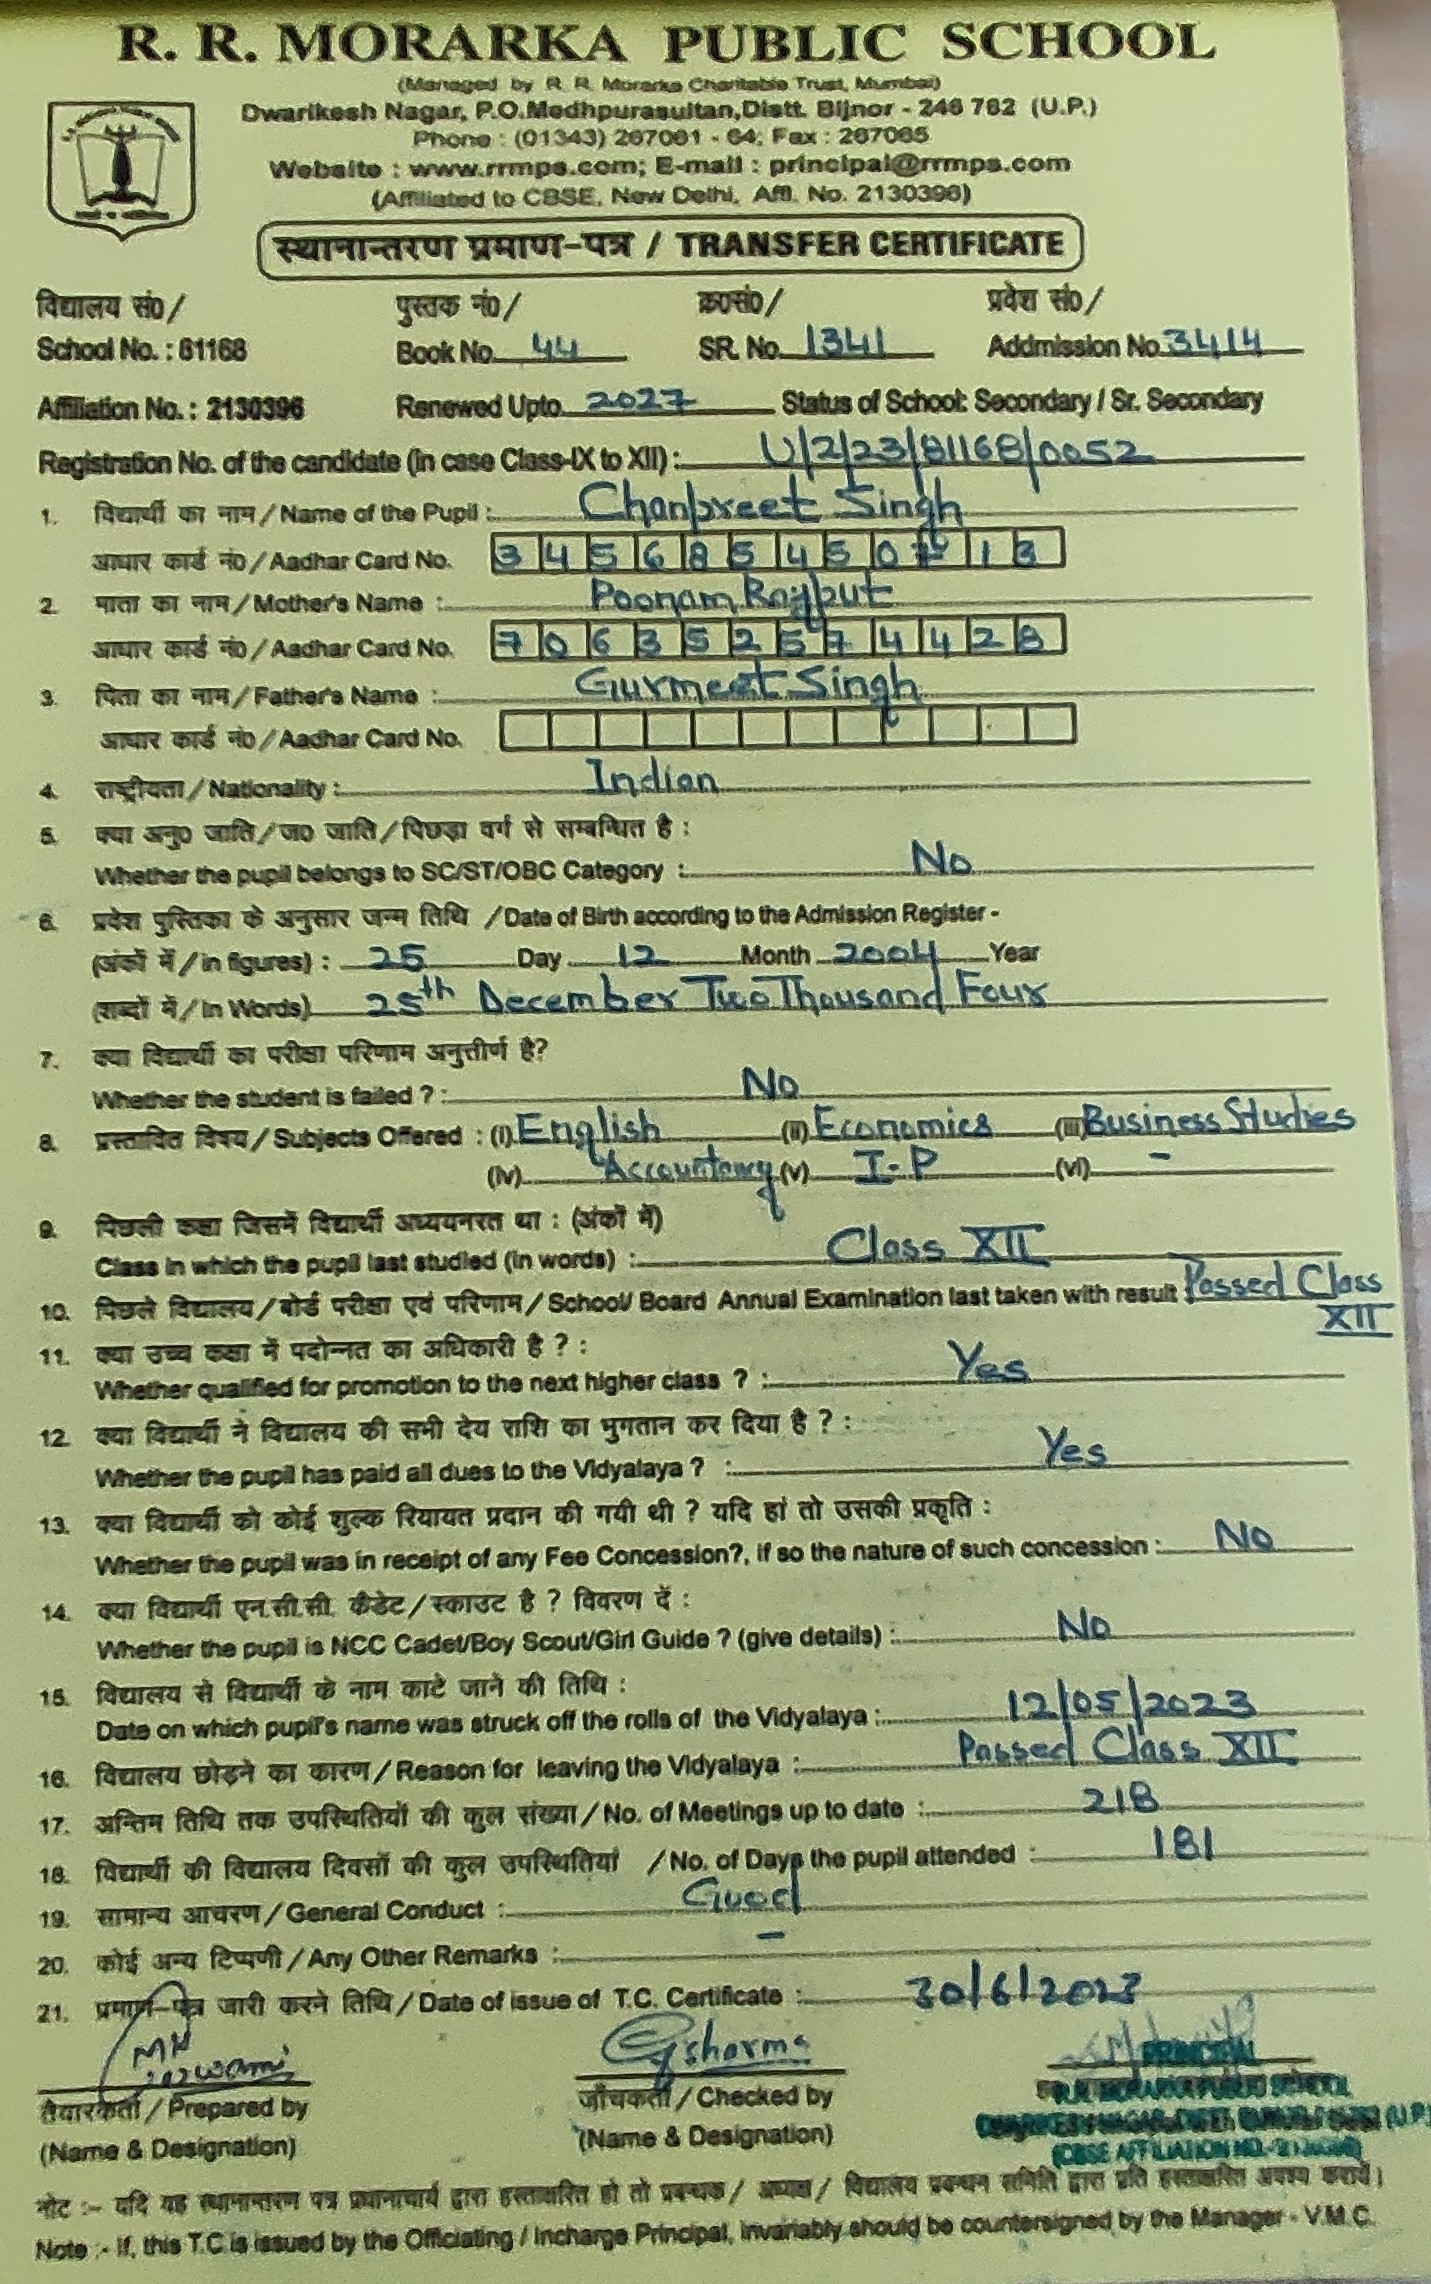 R. R. MORARKA PUBLIC SCHOOL
(Managed by R. R. Morarka Charitable Trust, Mumbai)
Dwarikesh Nagar, P.O.Medhpurasultan,Distt. Bijnor - 246 762 (U.P.)
Phone : (01343) 267061 - 64; Fax : 267065
Website : www.rrmps.com; E-mail : principal@rrmps.com
(Affiliated to CBSE, New Delhi, Affl. No. 2130396)
स्थानान्तरण प्रमाण-पत्र / TRANSFER CERTIFICATE
विद्यालय सं0 / पुस्तक नं0 / क्र0सं0 / प्रवेश सं0 /
School No. : 81168 Book No. 44 SR. No. 1341 Addmission No. 3414
Affiliation No. : 2130396 Renewed Upto 2027 Status of School: Secondary / Sr. Secondary
Registration No. of the candidate (in case Class-IX to XII) : U/2/23/81168/0052
1. विद्यार्थी का नाम / Name of the Pupil : Chanpreet Singh
आधार कार्ड नं0 / Aadhar Card No. 3 4 5 6 8 5 4 5 0 7 1 3
2. माता का नाम / Mother's Name : Poonam Rajput
आधार कार्ड नं0 / Aadhar Card No. 7 0 6 3 5 2 5 7 4 4 2 8
3. पिता का नाम / Father's Name : Gurmeet Singh
आधार कार्ड नं0 / Aadhar Card No.
4. राष्ट्रीयता / Nationality : Indian
5. क्या अनु0 जाति / ज0 जाति / पिछड़ा वर्ग से सम्बन्धित है :
Whether the pupil belongs to SC/ST/OBC Category : No
6. प्रवेश पुस्तिका के अनुसार जन्म तिथि / Date of Birth according to the Admission Register -
(अंकों में / in figures) : 25 Day 12 Month 2004 Year
(शब्दों में / In Words) 25th December Two Thousand Four
7. क्या विद्यार्थी का परीक्षा परिणाम अनुत्तीर्ण है?
Whether the student is failed ? : No
8. प्रस्तावित विषय / Subjects Offered : (I) English (II) Economics (III) Business Studies
(IV) Accountancy (V) I-P (VI) -
9. पिछली कक्षा जिसमें विद्यार्थी अध्ययनरत था : (अंकों में)
Class in which the pupil last studied (in words) : Class XII
10. पिछले विद्यालय / बोर्ड परीक्षा एवं परिणाम / School/ Board Annual Examination last taken with result : Passed Class
XII
11. क्या उच्च कक्षा में पदोन्नत का अधिकारी है ? :
Whether qualified for promotion to the next higher class ? : Yes
12. क्या विद्यार्थी ने विद्यालय की सभी देय राशि का भुगतान कर दिया है ? :
Whether the pupil has paid all dues to the Vidyalaya ? : Yes
13. क्या विद्यार्थी को कोई शुल्क रियायत प्रदान की गयी थी ? यदि हां तो उसकी प्रकृति :
Whether the pupil was in receipt of any Fee Concession?, if so the nature of such concession : No
14. क्या विद्यार्थी एन.सी.सी. कैडेट / स्काउट है ? विवरण दें :
Whether the pupil is NCC Cadet/Boy Scout/Girl Guide ? (give details) : No
15. विद्यालय से विद्यार्थी के नाम काटे जाने की तिथि :
Date on which pupil's name was struck off the rolls of the Vidyalaya : 12/05/2023
16. विद्यालय छोड़ने का कारण / Reason for leaving the Vidyalaya : Passed Class XII
17. अन्तिम तिथि तक उपस्थितियों की कुल संख्या / No. of Meetings up to date : 218
18. विद्यार्थी की विद्यालय दिवसों की कुल उपस्थितियां / No. of Days the pupil attended : 181
19. सामान्य आचरण / General Conduct : Good
20. कोई अन्य टिप्पणी / Any Other Remarks : -
21. प्रमाण-पत्र जारी करने तिथि / Date of issue of T.C. Certificate : 30/6/2023
Gsharma PRINCIPAL
तैयारकर्ता / Prepared by जाँचकर्ता / Checked by R.R. MORARKA PUBLIC SCHOOL
(Name & Designation) (Name & Designation) (CBSE AFFILIATION NO.-2130396)
नोट :- यदि यह स्थानान्तरण पत्र प्रधानाचार्य द्वारा हस्ताक्षरित हो तो प्रबन्धक / अध्यक्ष / विद्यालय प्रबन्धन समिति द्वारा प्रति हस्ताक्षरित अवश्य करायें।
Note :- If, this T.C is issued by the Officiating / Incharge Principal, invariably should be countersigned by the Manager - V.M.C.